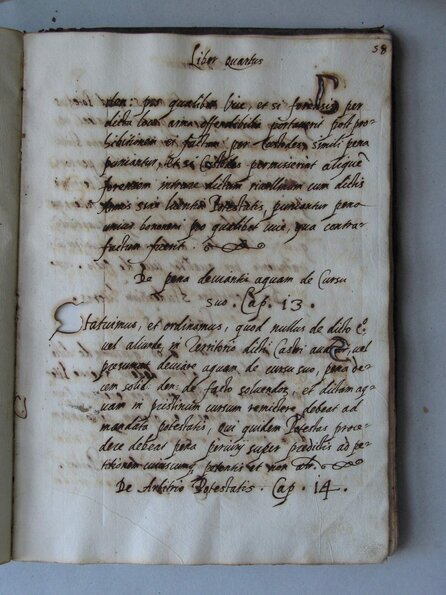 58
Liber quartus
den: pro qualibet vice, et si forensis per
dicta loca arma offendibilia portaverit post pro-
hibitionem et factam per Custodes, simili pena
puniantur, Et si Custodes permiserint aliquem
forensem intrare dictum cum dictis
armis sine licentia Potestatis, puniantur pena
unius bononeni pro qualibet vice, qua contra-
factum fuerit.
De pena deviantis aquam de Cursu
suo. Cap. 13.
Statuimus, et ordinamus, quod nullus de dicto C.
vel aliunde in Territorio dicti Castri audeat, vel
presumat deviare aquam de cursu suo, pena de-
cem solid. den: de facto solvendor, et dictam aq-
uam in pristinum cursum remittere debeat ad
mandata potestatis, qui quidem Potestas proce-
dere debeat pena periurij super predictis ad pe-
titionem cuiuscumq petentis et non
De Arbitrio Potestatis. Cap. 14.